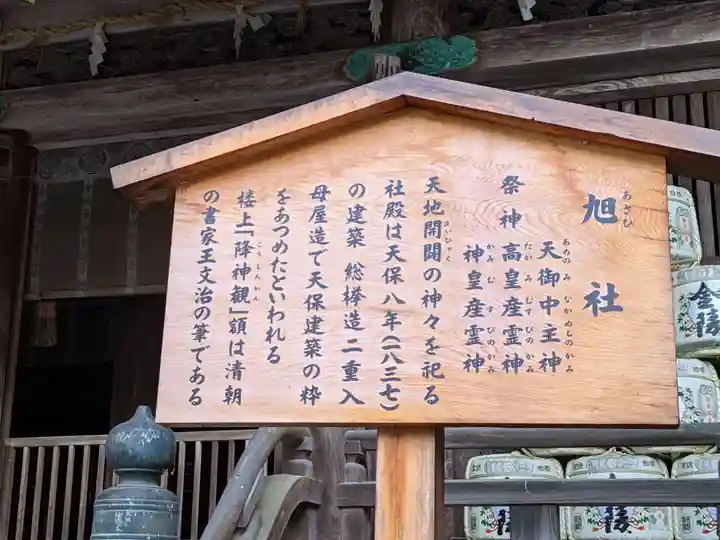 旭社
あさひ
天御中主神
あめのみなかぬしのかみ
祭神 高皇産霊神
たかみむすびのかみ
神皇産霊神
かみむすびのかみ
天地開闢の神々を祀る
かいびゃく
社殿は天保八年(一八三七)
の建築 総欅造二重入
母屋造で天保建築の粋
をあつめたといわれる
楼上「降神観」額は清朝
こうしんかん
の書家王文治の筆である
金陵
金陵
金陵